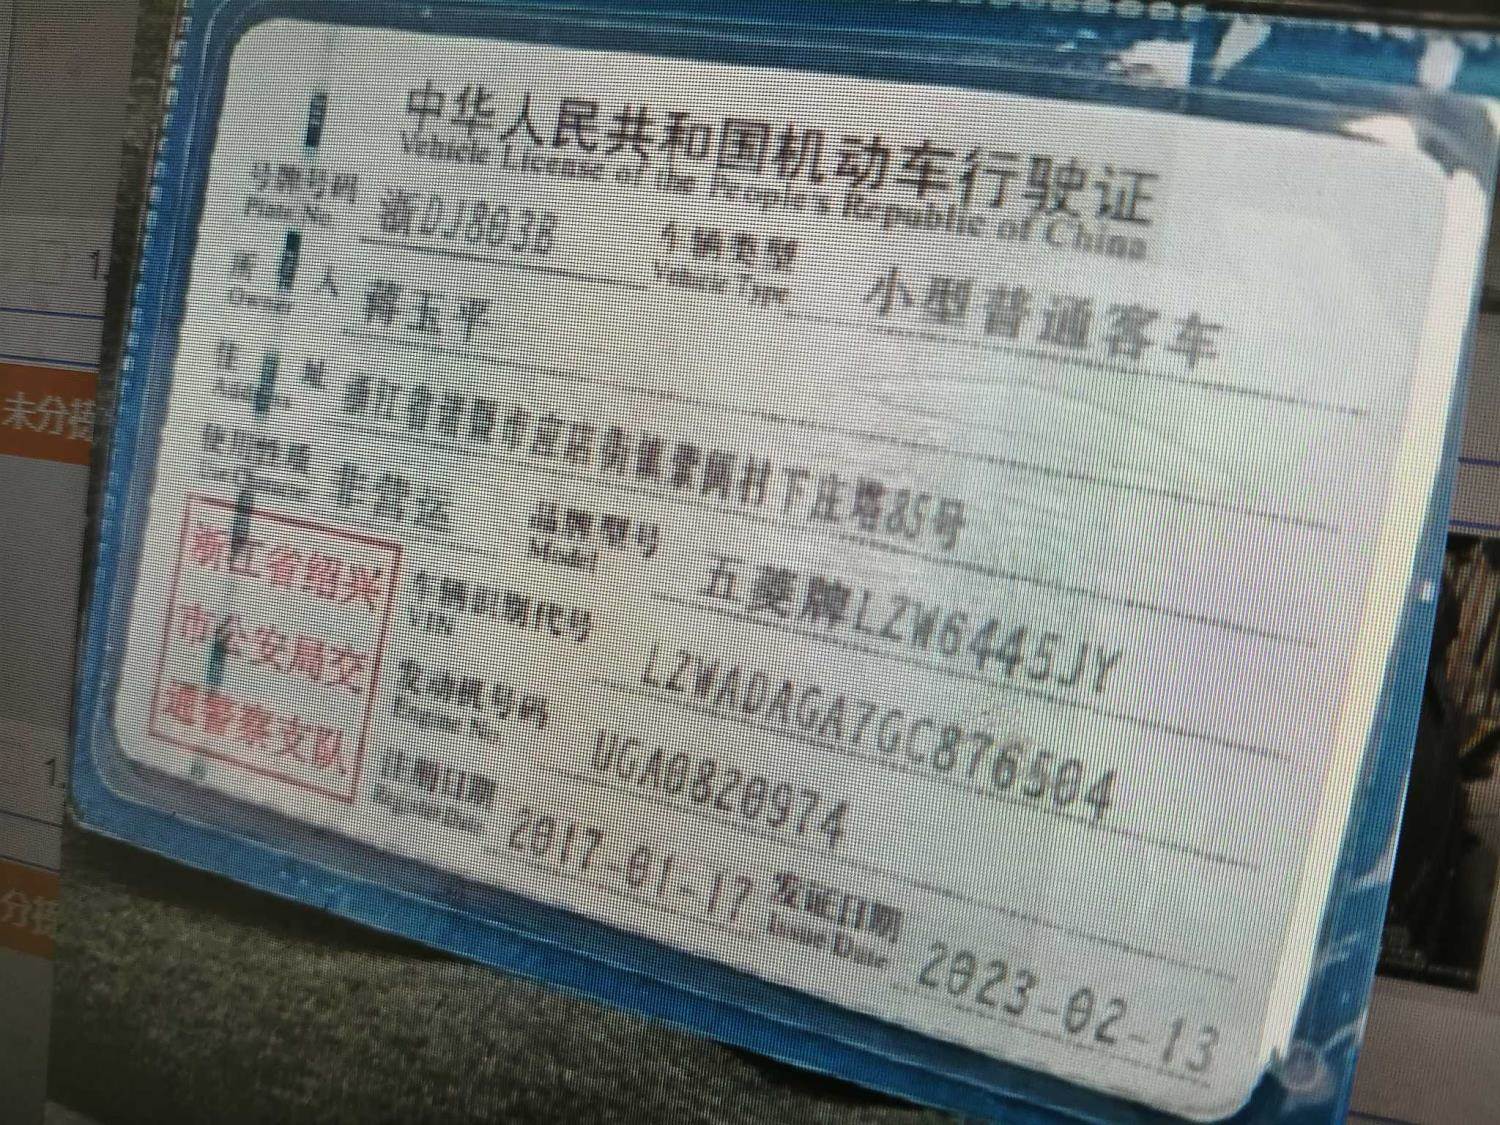 中华人民共和国机动车行驶证
Vehicle License of the People's Republic of China
号牌号码 浙DJ803B 车辆类型 小型普通客车
Plate No. Vehicle Type
所 人 玉平
Owner
住 址 浙江省 市 村下庄塔85号
使用性质 非营运 品牌型号 五菱牌LZW6445JY
Model
浙江省绍兴
市公安局交
通警察支队
车辆识别代号 LZWADAGA7GC876504
VIN
发动机号码 UGA0820974
Engine No.
注册日期 2017-01-17 发证日期 2023-02-13
Issue Date
未分
分